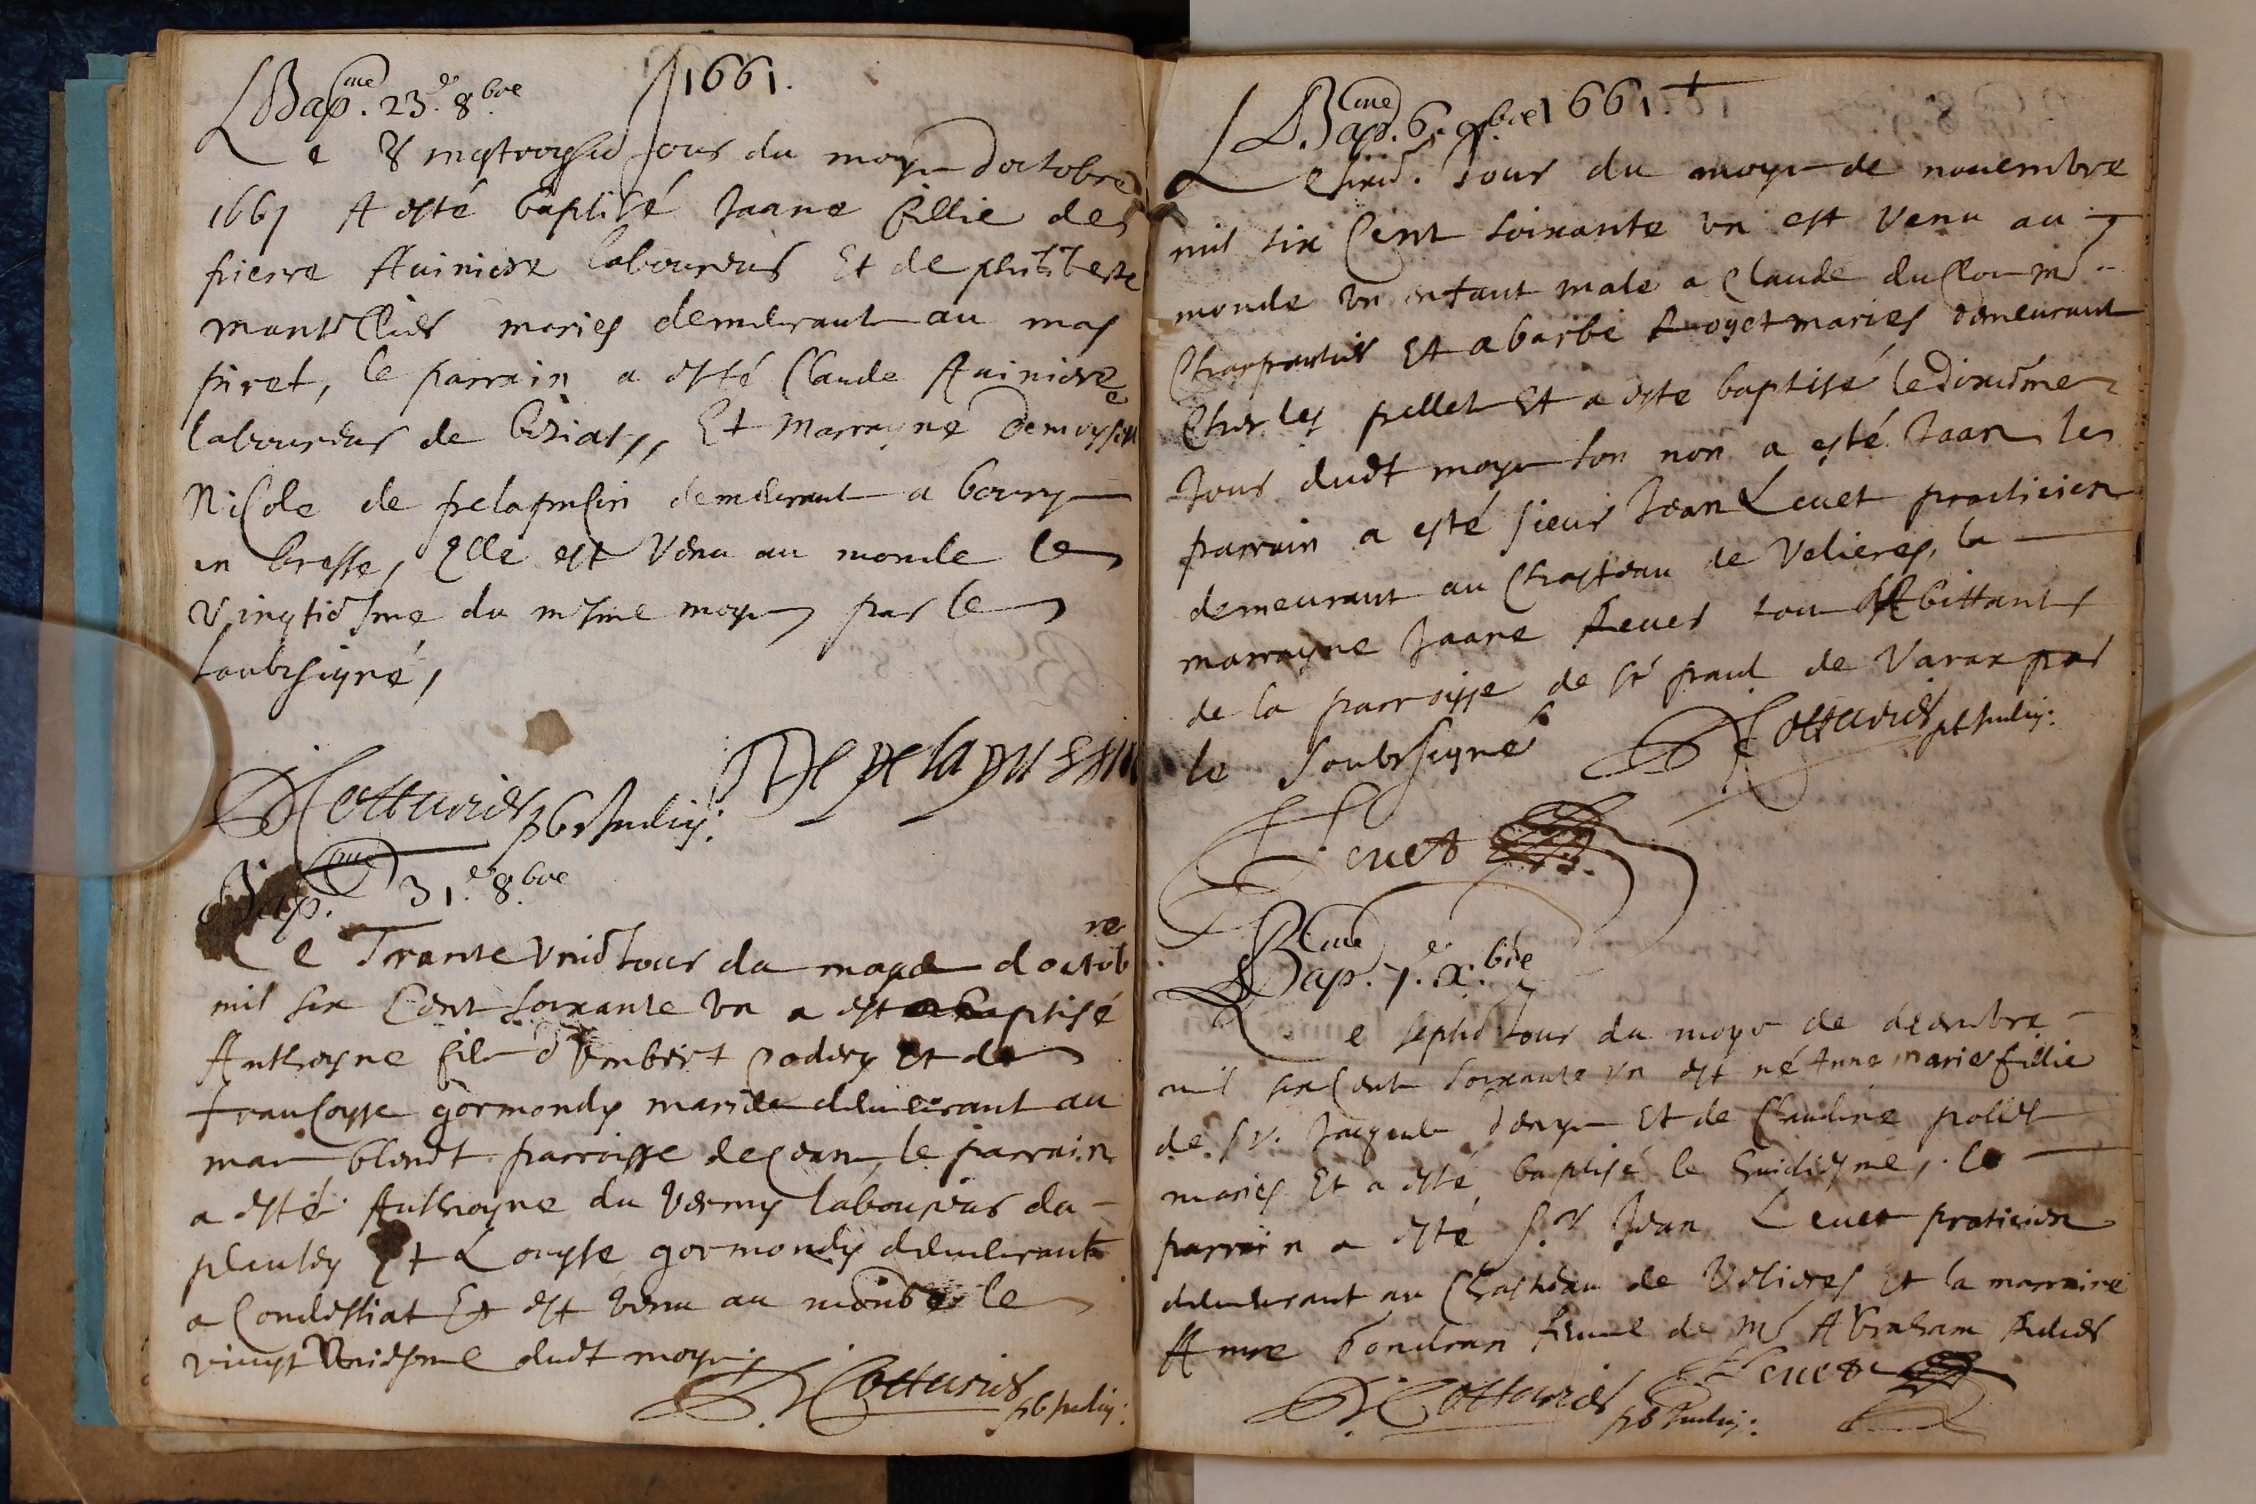 1661.
Bap.me 23.e 8.bre
Le vingtroysie Jour du moys doctobre
1661 A esté baptisé Jaane fillie de
pierre Auiniere laboureur Et de philiberte
mantellier maries demeurant au mas
piret, le parrain a esté Claude Auiniere
laboureur de Et marrayne Demoyselle
Nicole de pelapucin demeurant a bourg
en bresse, Elle est Venu au monde le
Vingtiesme du mesme moys par le
soubsigné,
De pelapussin
Cottarier
Bap.me 31.e 8.bre
Le Trante Vnie Jour du moys doctobre
mil six Cent soixante vn a esté baptisé
Anthoyne fils d'Vmbert Et de
francoyse gormondy maries demeurant au
mas blondt parroisse de le parrain
a esté Anthoyne du Verny laboureur da
Et Louyse gormondy demeurante
a Condessiat Et est Venu au monde le
vingt Vniesme dudt moys
Cottarier
Bap.me 6. 9.bre 1661. +
Le sixie. Jour du moys de nouembre
mil six Cent soixante vn est Venu au
monde vn enfant male a Claude duclou mr
Charpentier Et a barbe Royet maries demeurant
Ches les pellet Et a este baptisé le dixiesme
Jour dudt moys son non a esté Jaan le
parrain a esté sieur Jean Leuet practicien
demeurant au Chasteau de Velieres, la
marrayne Jaane Reuer tou habittants
de la parroisse de st paul de Varax par
le Soubsigné
Cottarier
Leuet
Bap.me 7.e X.bre
Le septie Jour du moys de decembre
mil six Cent soixante vn est né Anne marie fillie
de sr. Jacques denys Et de Claudine pollet
maries Et a esté baptisé le huictiesme, le
parrain a esté Sr Jean Leuet praticien
demeurant au Chasteau de Velieres Et la marraine
Anne Gondran femme de Mr Abraham
Cottarier
Leuet